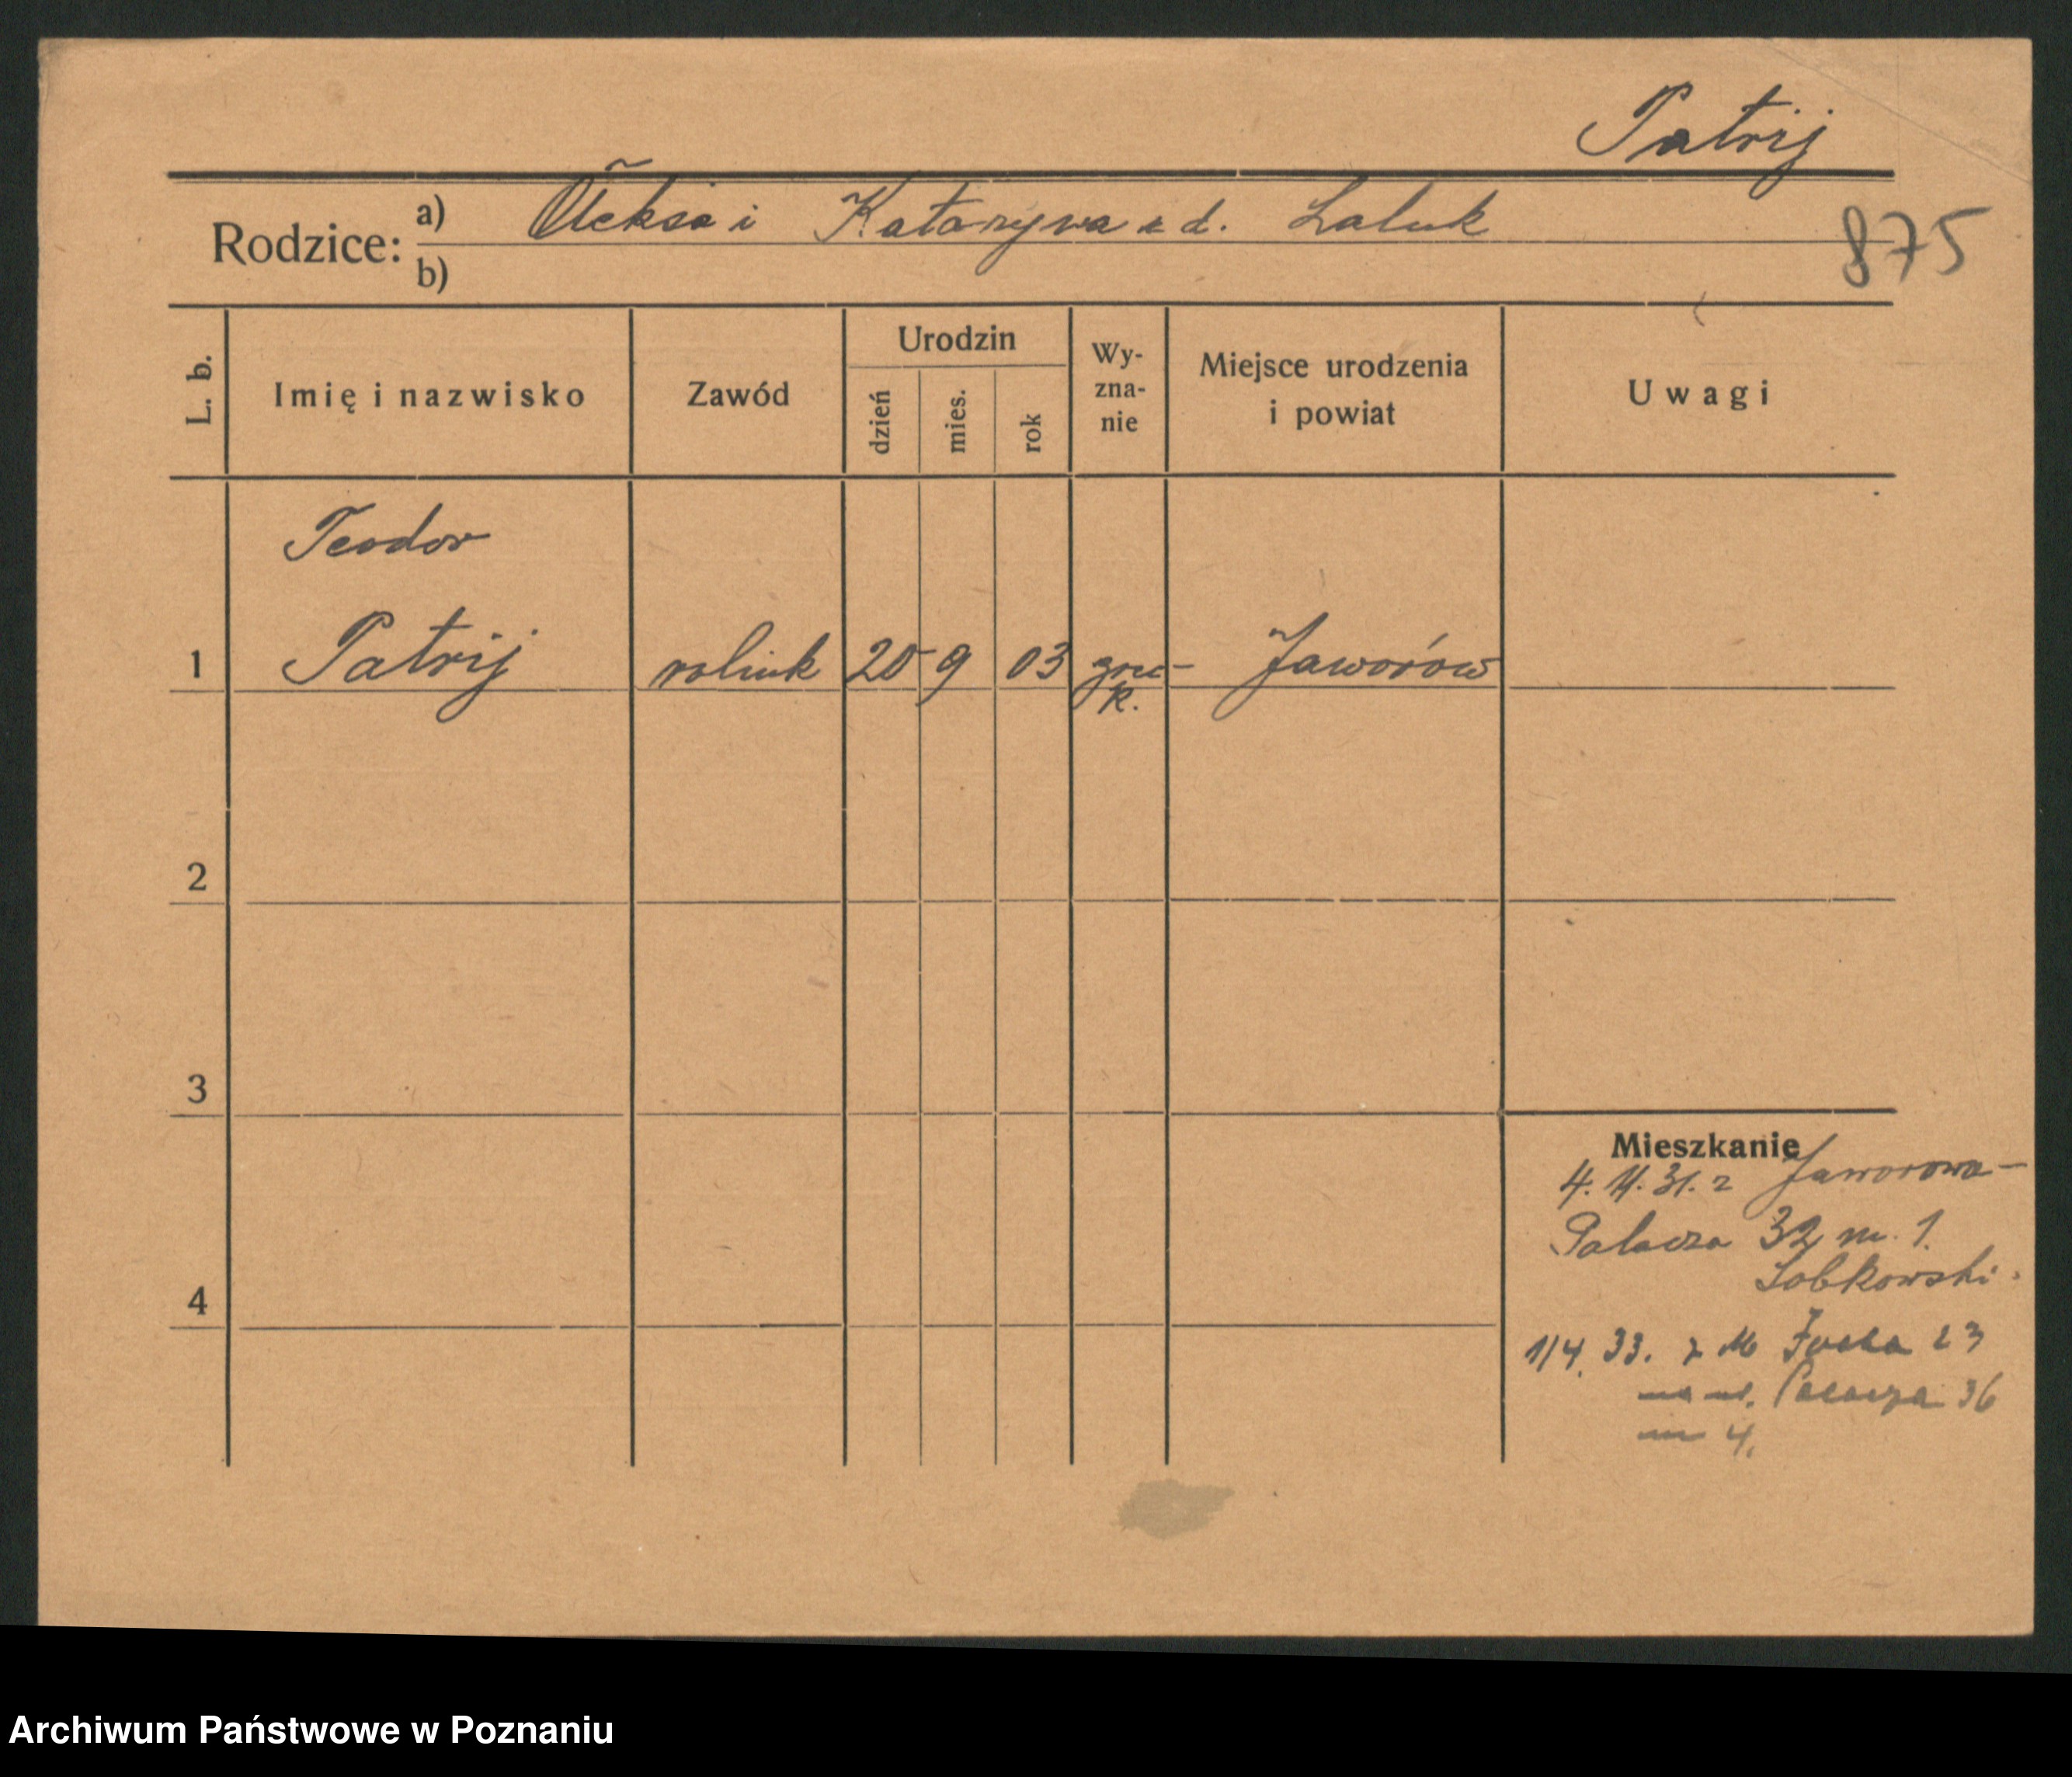 Patrij
Rodzice: a) Oleksa i Katarzyna z d. Laluk
b)
875
L. b.
Imię i nazwisko
Zawód
Urodzin
dzień
mies.
rok
Wy-
zna-
nie
Miejsce urodzenia
i powiat
Uwagi
Teodor
1 Patrij rolnik 20 9 03 grec- Jaworów
k.
2
3
4
Mieszkanie
4. 11. 31. z Jaworowa-
Palacza 32 m. 1.
Sobkowski.
1/4. 33. z M Focha 23
na ul. Palacza 36
m 4.
Archiwum Państwowe w Poznaniu